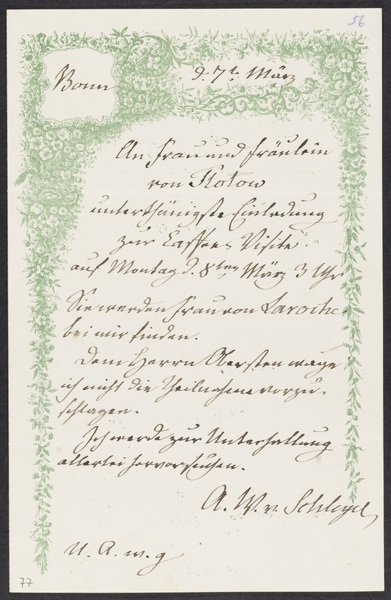 56
Bonn d. 7te März
An Frau und Fräulein
von Flotow
unterthänigste Einladung
zur Caffee-Visite
auf Montag d. 8ten März 3 Uhr
Sie werden Frau von Laroche
bei mir finden.
Dem Herrn Obersten wage
ich nicht die Theilnahme vorzu-
schlagen.
Ich werde zur Unterhaltung
allerlei hervorsuchen.
A. W. v. Schlegel
U. A. w. g
77